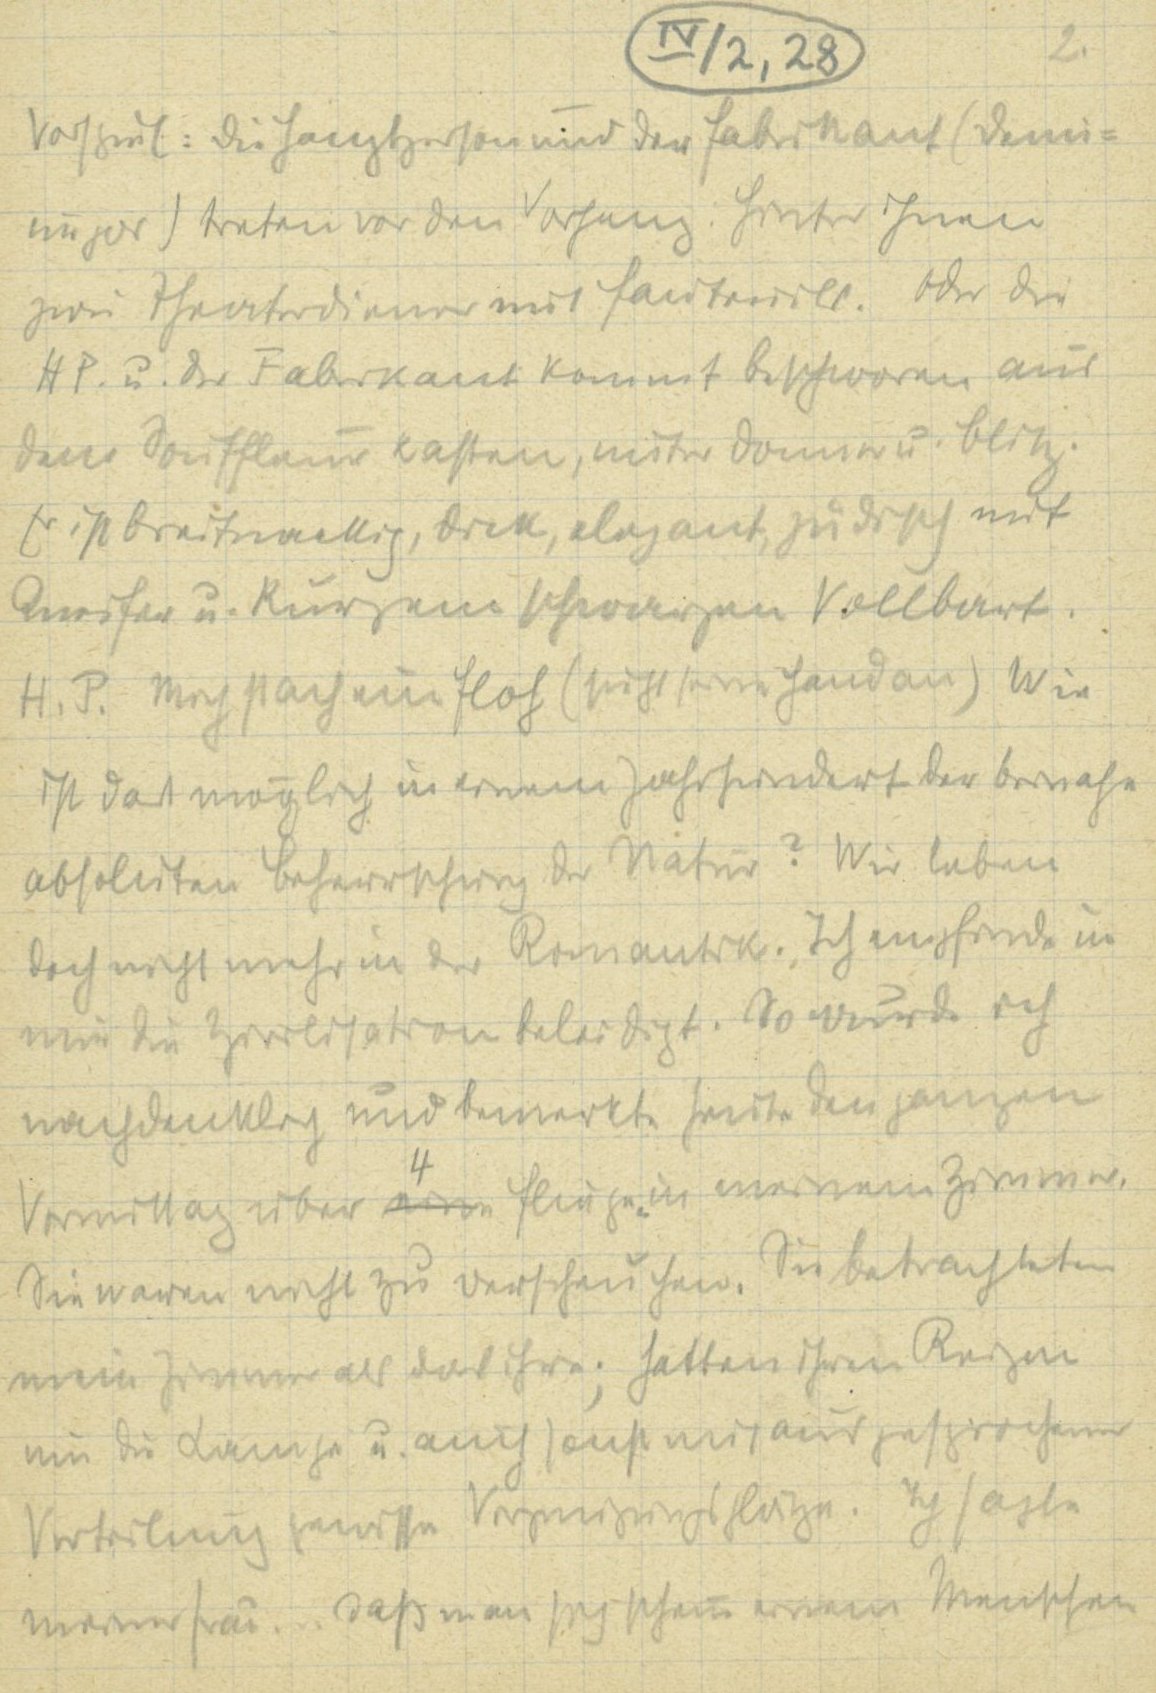 IV/2, 28 2.
Vorspiel: Die Hauptperson und der Fabrikant (Demi=
urgos) treten vor den Vorhang. Hinter ihnen
zwei Theaterdiener mit Fauteuills. Oder die
HP. u. der Fabrikant kommt beschworen aus
dem Souffleurkasten, unter Donner u. Blitz.
Er ist breitnackig, dick, elegant, jüdisch mit
Kneifer u. kurzem schwarzen Vollbart.
H. P. Mich stach ein Floh (sieht seine Hand an) Wie
ist das möglich in einem Jahrhundert der beinahe
absoluten Beherrschung der Natur? Wir leben
doch nicht mehr in der Romantik. Ich empfinde in
mir die Zivilisation beleidigt. So wurde ich
nachdenklich und bemerkte heute den ganzen
Vormittag über 4 Fliegen in meinem Zimmer.
Sie waren nicht zu verscheuchen. Sie betrachteten
mein Zimmer als das ihre; hatten ihren Reigen
um die Lampe u. auch sonst mit ausgesprochener
Verteilung gewisse Vergnügungsplätze. Ich sagte
meiner Frau ... daß man sich schon einem Menschen